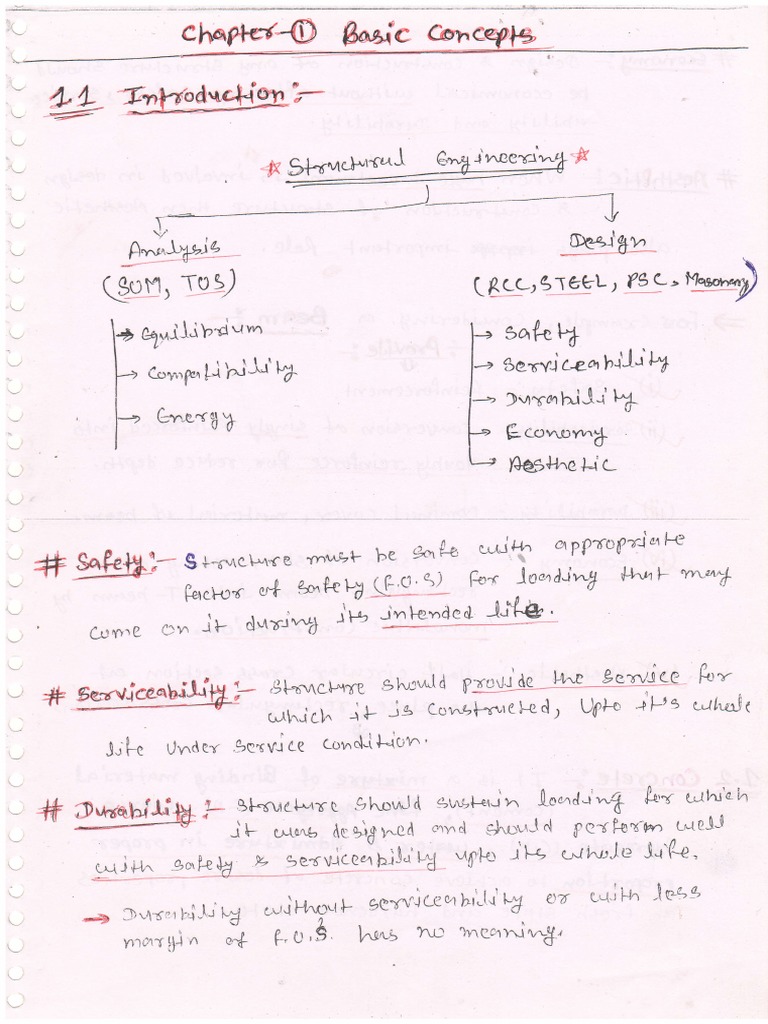 Chapter-① Basic Concepts
1.1 Introduction:-
☆ Structural Engineering ☆
Analysis
Design
(SOM, TOS)
(RCC, STEEL, PSC, Masonary)
→ Equilibrium
→ Compatibility
→ Energy
→ Safety
→ Serviceability
→ Durability
→ Economy
→ Aesthetic
# Safety:- Structure must be safe with appropriate
factor of safety (F.O.S) for loading that may
come on it during its intended life.
# Serviceability:- Structure should provide the service for
which it is constructed, upto it's whole
life under service condition.
# Durability:- Structure should sustain loading for which
it was designed and should perform well
with safety & serviceability upto its whole life.
→ Durability without serviceability or with less
margin of F.O.S. has no meaning.